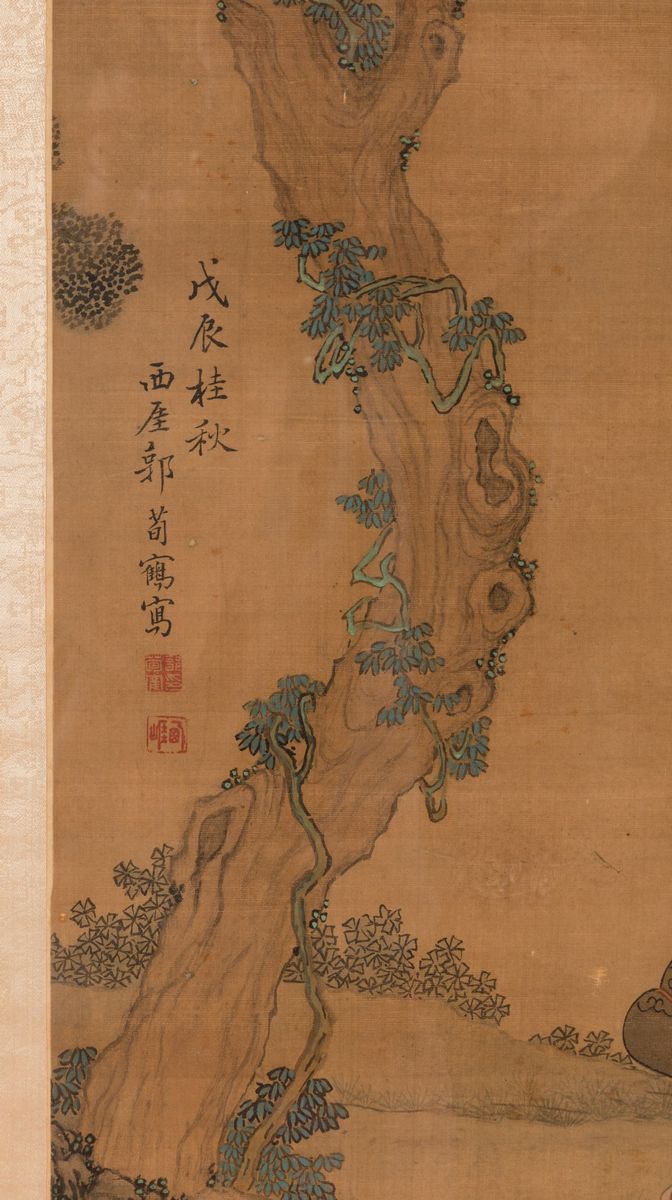 戊辰桂秋
西厓郭荀鶴寫